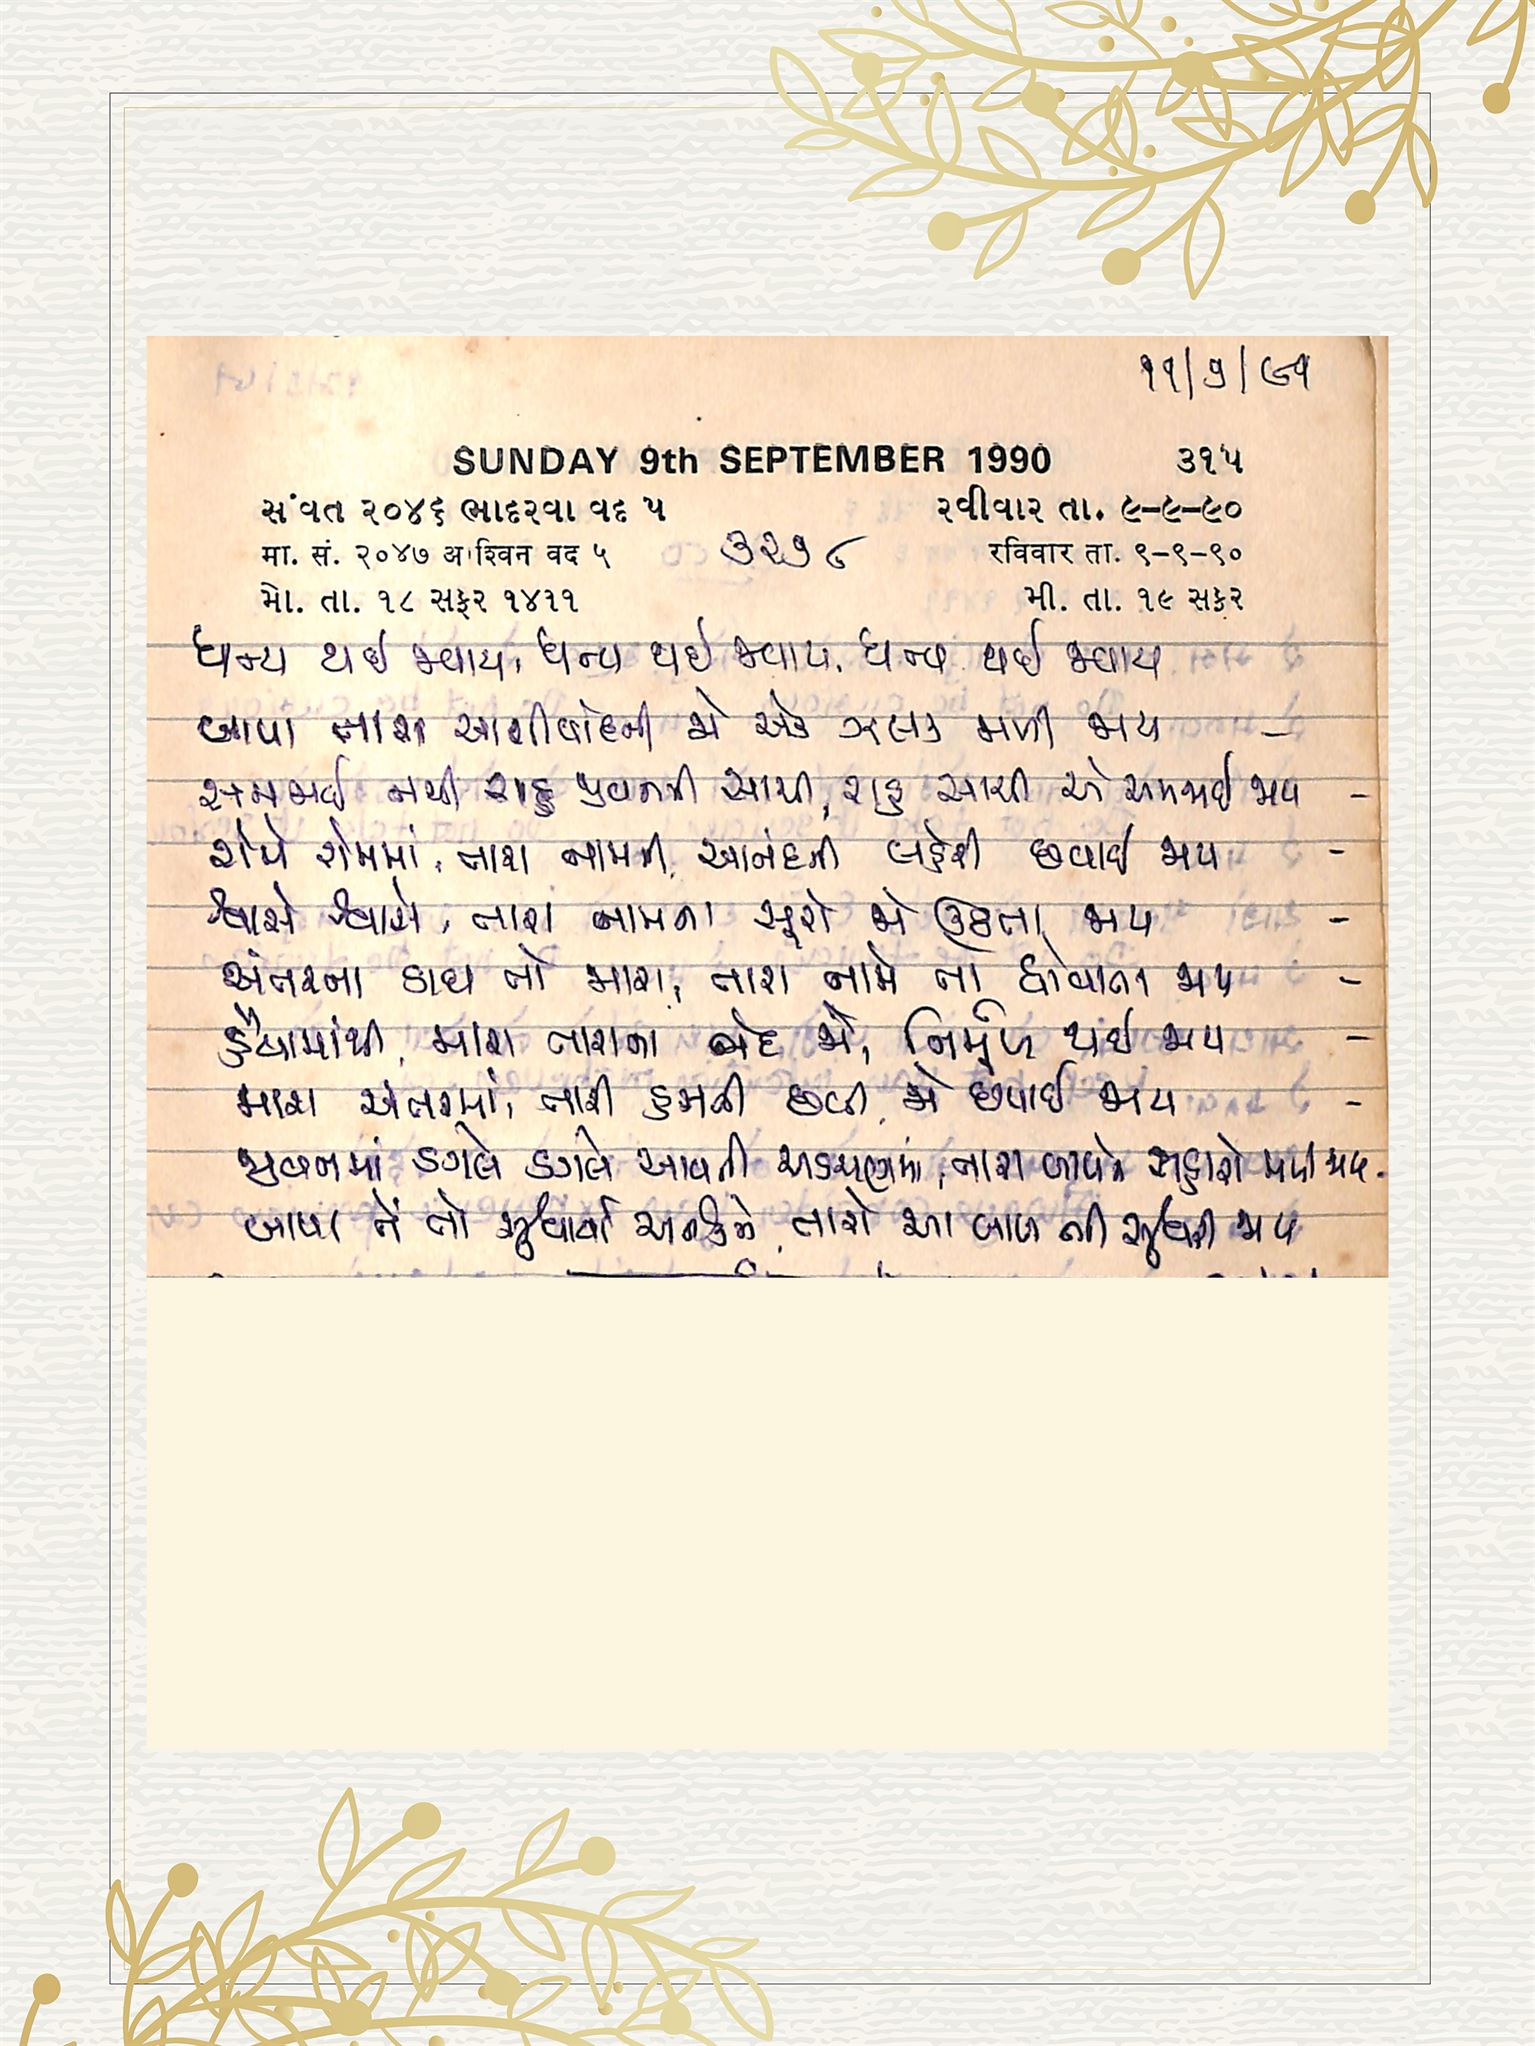 ૧૧/૭/૯૧
SUNDAY 9th SEPTEMBER 1990 ૩૧૫
સંવત ૨૦૪૬ ભાદરવા વદ ૫ રવીવાર તા. ૯-૯-૯૦
मा. सं. २०४७ अाश्विन वद ५ ૩૨૭૮ रविवार ता. ९-९-९०
મો. તા. ૧૮ સફર ૧૪૧૧ મી. તા. ૧૯ સફર
ધન્ય થઈ જવાય, ધન્ય થઈ જવાય, ધન્ય થઈ જવાય
બાપા તારા આશીર્વાદની જો એક ઝલક મળી જાય -
સમજાઈ નથી રાહ જીવનની સાચી, રાહ સાચી જો સમજાઈ જાય -
રોમે રોમમાં, તારા નામની, આનંદની લહેરી છવાઈ જાય -
શ્વાસે શ્વાસે, તારા નામના સૂરો જો ઉઠતા જાય -
અંતરના ડાઘ તો મારા, તારા નામે તો ધોવાતા જાય -
હૈયામાંથી, મારા તારાના ભેદ જો, નિર્મૂળ થઈ જાય -
મારા અંતરમાં, તારી હસતી છબી, જો છપાઈ જાય -
જીવનમાં ડગલે ડગલે આવતી અડચણમાં, તારા બાપનો સહારો મળી જાય -
બાપા તેં તો સુધાર્યા અનેકને, તારો આ બાળ ભી સુધરી જાય